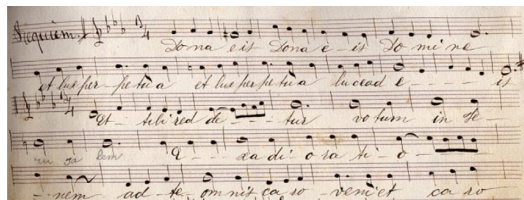 Requiem 3/4
Dona eis Dona e - is Do mi ne
et lux per - pe tu a et lux per pe tu a lu ce ad e - - - - is
et - ti bi red de - - - - tur vo tum in Je -
ru sa lem E - - xa di o ra ti - o - - -
- - nem ad - te om nis ca ro - ven i et ca ro